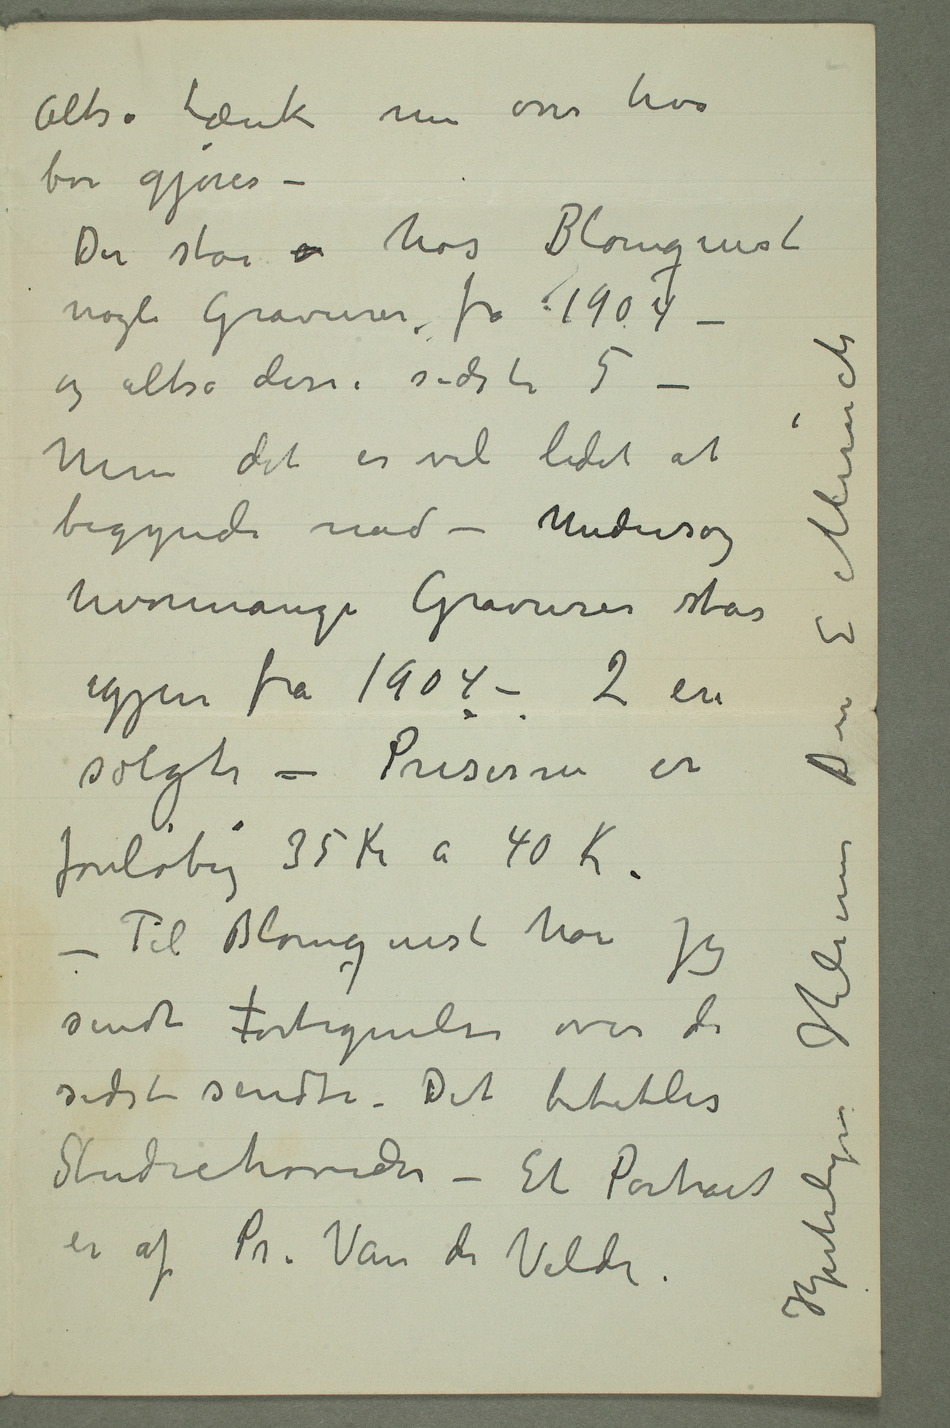 Altså tænk nu over hva
bør gjøres –
Der står hos Blomquist
nogle Gravurer fra 1904 –
og altså disse sidste 5 –
Men det er vel lidet at
begynde med – Undersøg
hvormange Gravurer står
igjen fra 1904 – 2 ere
solgte – Priserne er
foreløbig 35 Kr a 40 Kr.
– Til Blomquist har jeg
sendt Fortegnelse over de
sidst sendte – Det betitles
Studiehoveder – Et Portrait
er af Pr. Van de Velde.
Hjertelige Hilsener Din E Munch